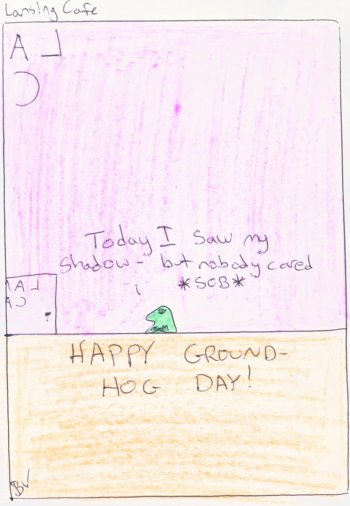 Lansing Cafe
Today I saw my
shadow- but nobody cared
*SOB*
HAPPY GROUND-
HOG DAY!
BV